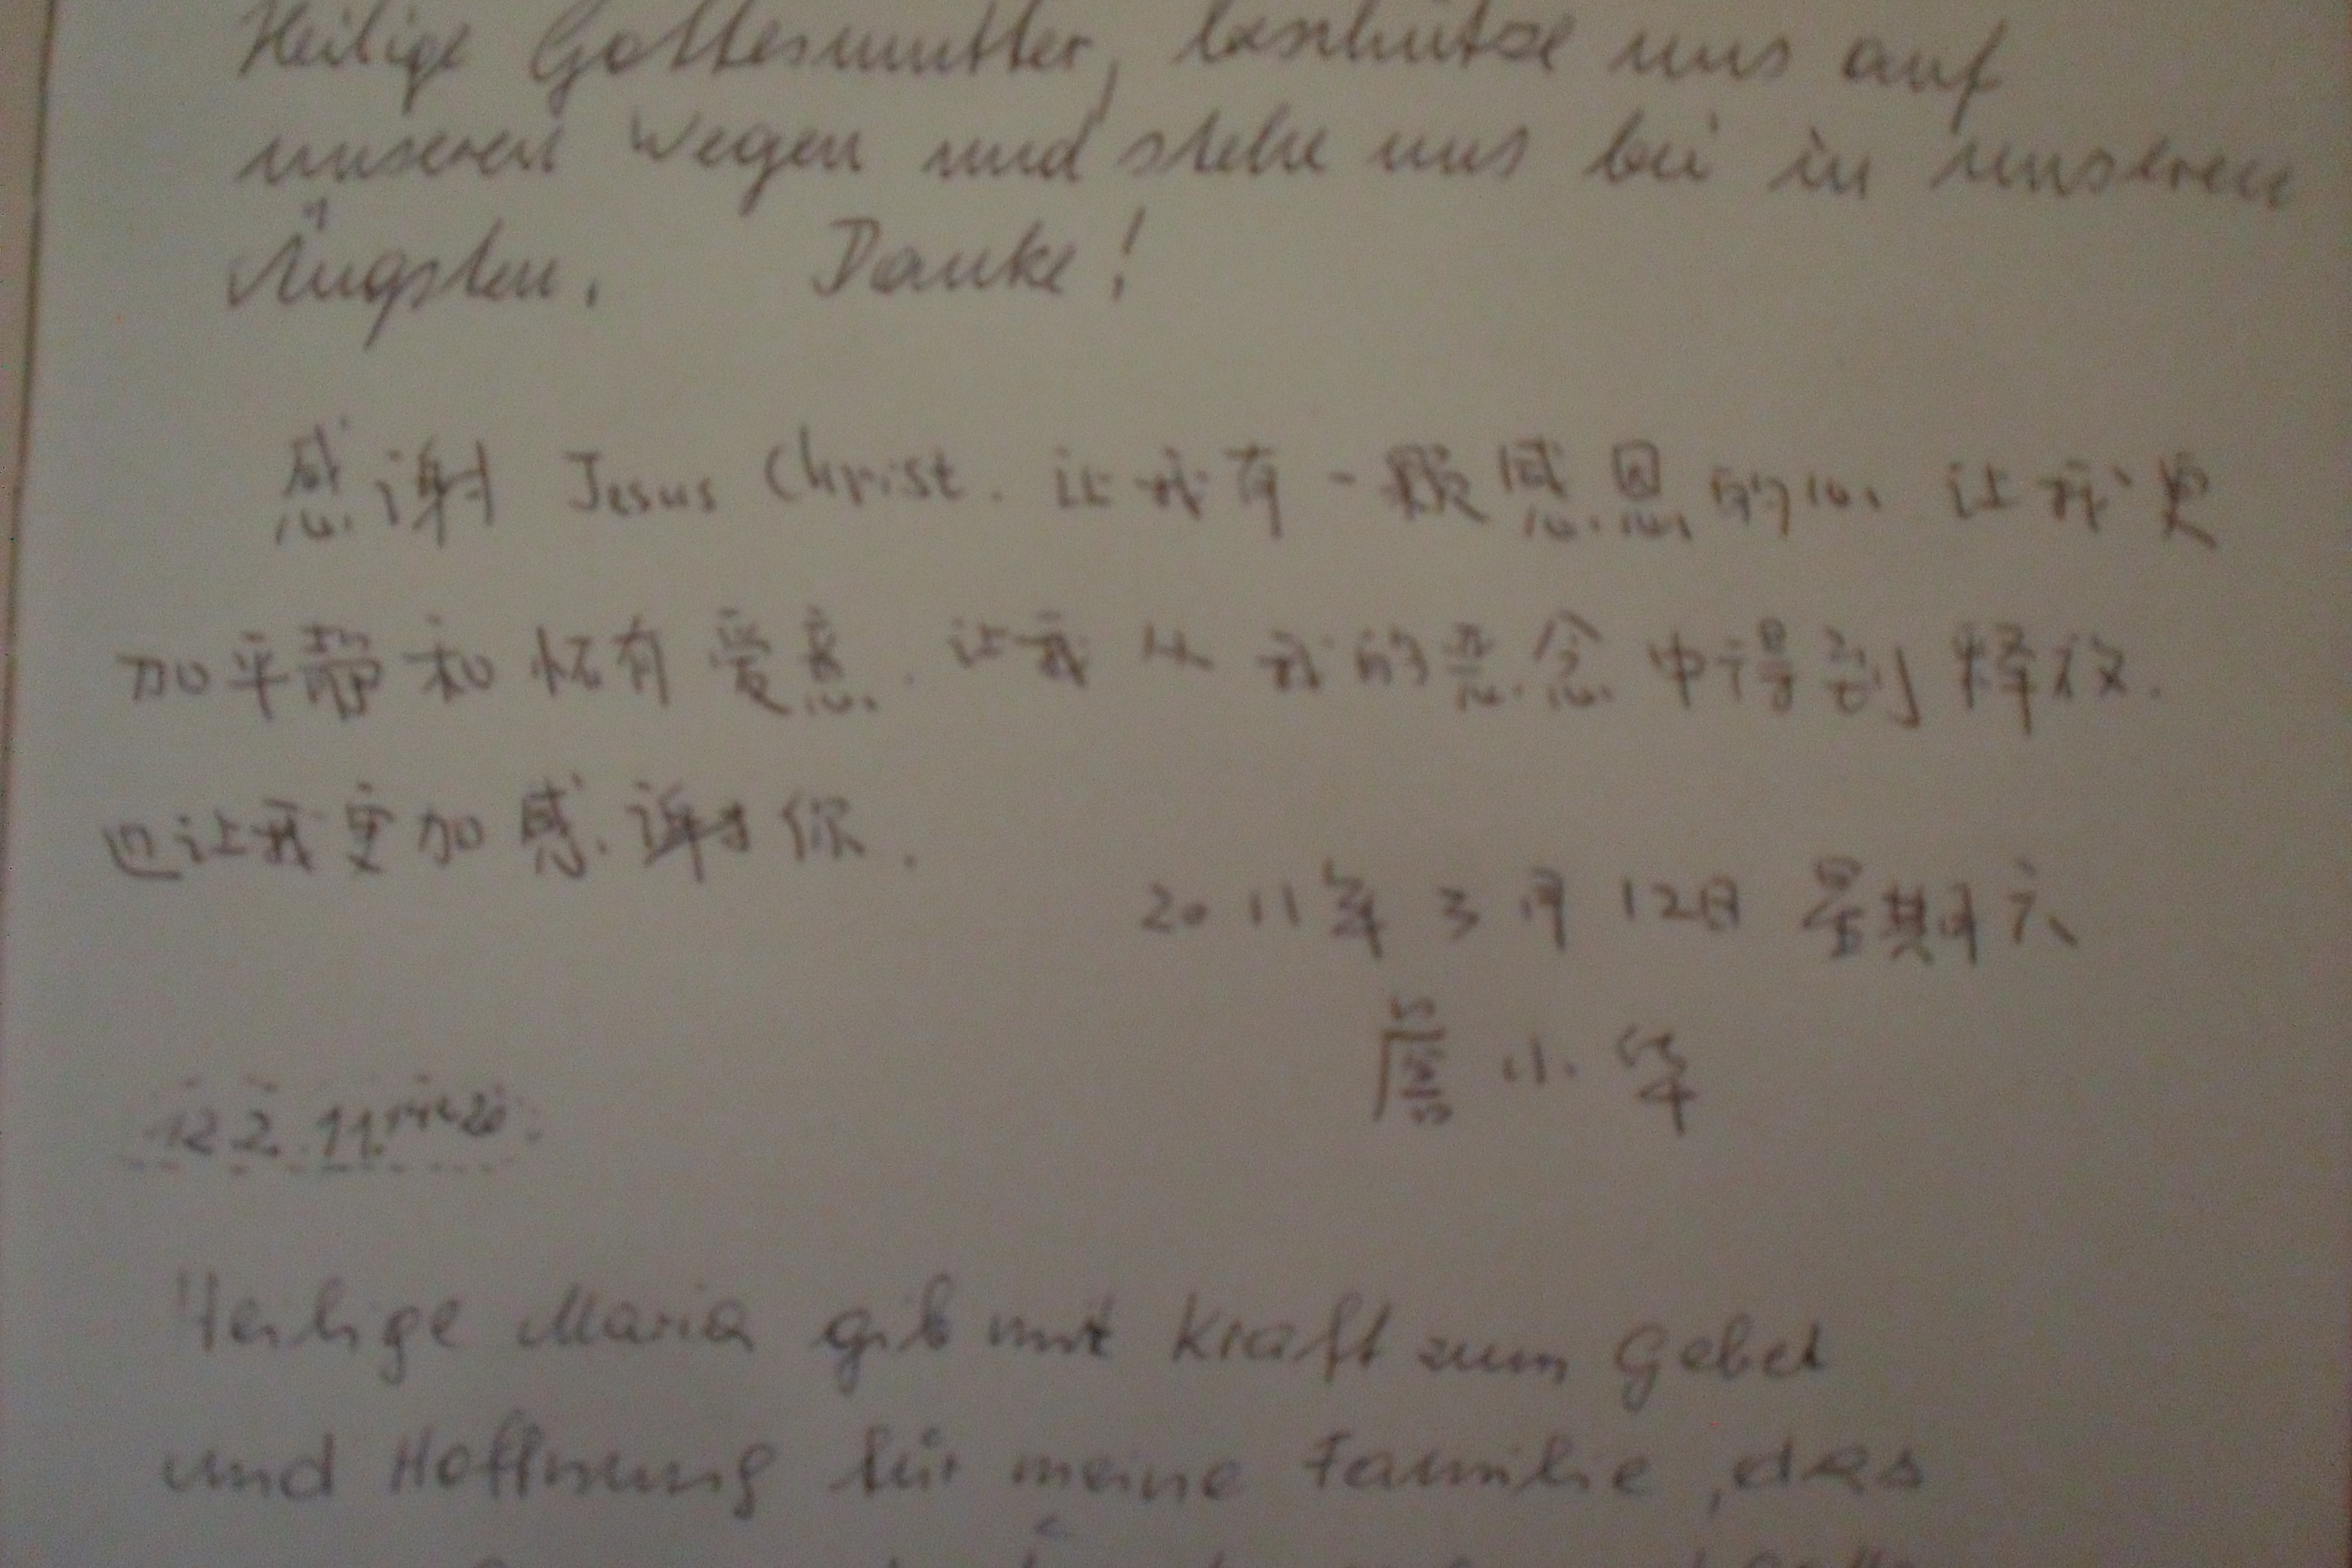 Heilige Gottesmutter, beschütze uns auf
unseren Wegen und stehe uns bei in unseren
Ängsten. Danke!
感谢 Jesus Christ. 让我有一颗感恩的心 让我更
加平静和怀有爱意. 让我从我的恶念中得到释放.
也让我更加感谢你.
2011年3月12日 星期六
詹小华
Heilige Maria gib mir Kraft zum Gebet
und Hoffnung für meine Familie, das